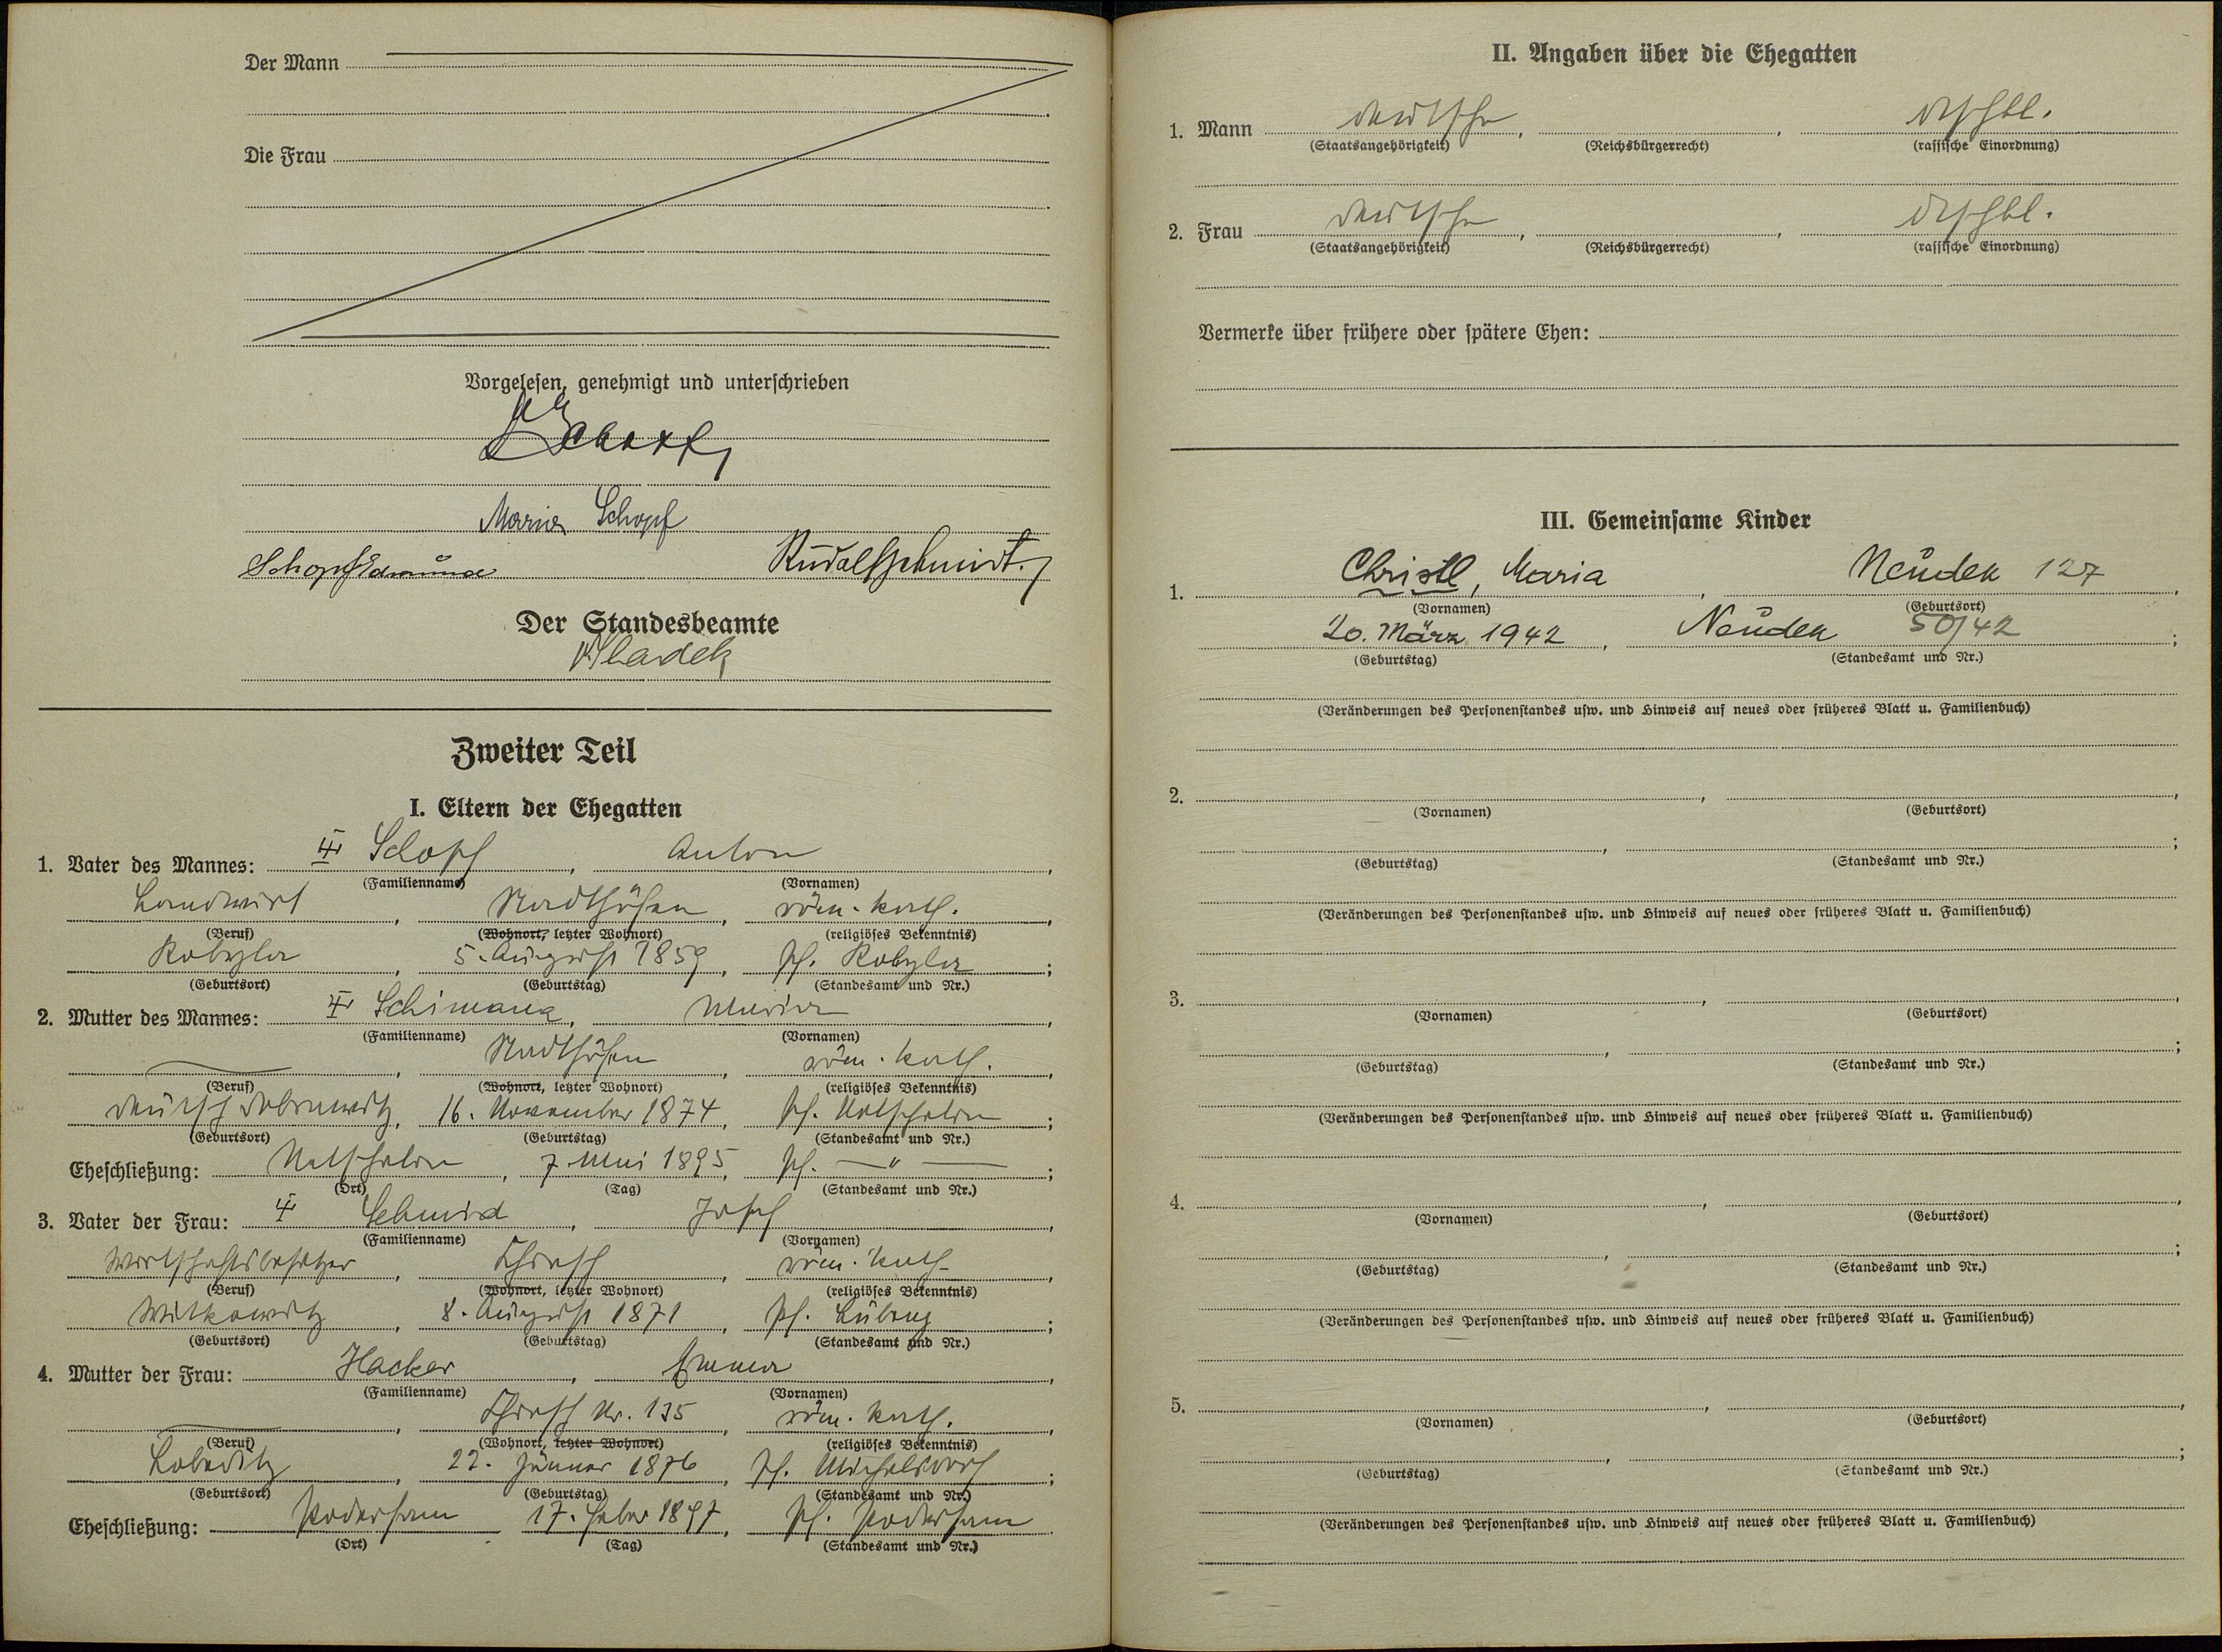 Der Mann
Die Frau
Vorgelesen, genehmigt und unterschrieben
Maria Schopf
Schopf Edmund Rudolf Schmidt.
Der Standesbeamte
Sladek
Zweiter Teil
I. Eltern der Ehegatten
1. Vater des Mannes: Schopf, Anton,
(Familienname) (Vornamen)
Landwirt, Stadthöfen, röm.-kath.,
(Beruf) (Wohnort, letzter Wohnort) (religiöses Bekenntnis)
Kobyla, 5. August 1859, Pf. Kobyla;
(Geburtsort) (Geburtstag) (Standesamt und Nr.)
2. Mutter des Mannes: Schimana, Maria,
(Familienname) (Vornamen)
Stadthöfen, röm.-kath.,
(Beruf) (Wohnort, letzter Wohnort) (religiöses Bekenntnis)
Deutsch, 16. November 1874, Pf. Netschetin;
(Geburtsort) (Geburtstag) (Standesamt und Nr.)
Eheschließung: Netschetin, 7. Mai 1895, Pf. — " —;
(Ort) (Tag) (Standesamt und Nr.)
3. Vater der Frau: Schmid, Josef,
(Familienname) (Vornamen)
Wirtschaftsbesitzer, Chiesch, röm.-kath.,
(Beruf) (Wohnort, letzter Wohnort) (religiöses Bekenntnis)
Witkowitz, 8. August 1871, Pf. Lubenz;
(Geburtsort) (Geburtstag) (Standesamt und Nr.)
4. Mutter der Frau: Hacker, Emma,
(Familienname) (Vornamen)
Chiesch Nr. 135, röm.-kath.,
(Beruf) (Wohnort, letzter Wohnort) (religiöses Bekenntnis)
Lobeditz, 22. Jänner 1876, Pf. Michelsdorf;
(Geburtsort) (Geburtstag) (Standesamt und Nr.)
Eheschließung: Podersam 17. Feber 1897, Pf. Podersam
(Ort) (Tag) (Standesamt und Nr.)
II. Angaben über die Ehegatten
1. Mann deutsche, , dtschbl.
(Staatsangehörigkeit) (Reichsbürgerrecht) (rassische Einordnung)
2. Frau deutsche, , dtschbl.
(Staatsangehörigkeit) (Reichsbürgerrecht) (rassische Einordnung)
Vermerke über frühere oder spätere Ehen:
III. Gemeinsame Kinder
1. Christl, Maria, Neudek 127,
(Vornamen) (Geburtsort)
20. März 1942, Neudek 50/42;
(Geburtstag) (Standesamt und Nr.)
(Veränderungen des Personenstandes usw. und Hinweis auf neues oder früheres Blatt u. Familienbuch)
2. , ,
(Vornamen) (Geburtsort)
, ;
(Geburtstag) (Standesamt und Nr.)
(Veränderungen des Personenstandes usw. und Hinweis auf neues oder früheres Blatt u. Familienbuch)
3. , ,
(Vornamen) (Geburtsort)
, ;
(Geburtstag) (Standesamt und Nr.)
(Veränderungen des Personenstandes usw. und Hinweis auf neues oder früheres Blatt u. Familienbuch)
4. , ,
(Vornamen) (Geburtsort)
, ;
(Geburtstag) (Standesamt und Nr.)
(Veränderungen des Personenstandes usw. und Hinweis auf neues oder früheres Blatt u. Familienbuch)
5. , ,
(Vornamen) (Geburtsort)
, ;
(Geburtstag) (Standesamt und Nr.)
(Veränderungen des Personenstandes usw. und Hinweis auf neues oder früheres Blatt u. Familienbuch)